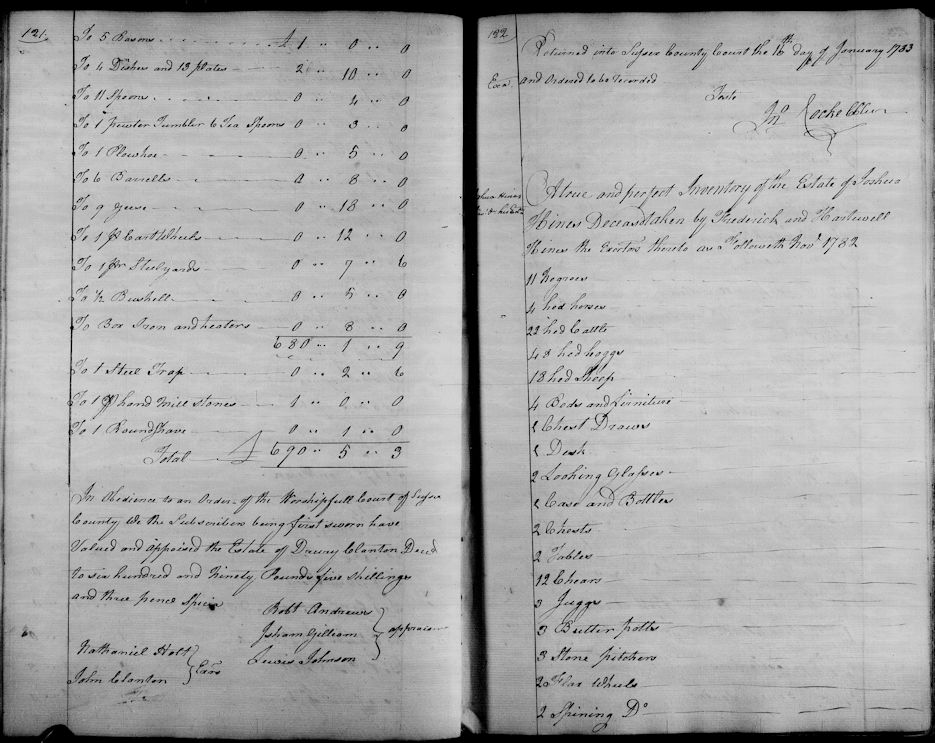 121.
To 5 Basons £ 1 " 0 " 0
To 4 Dishes and 13 plates 2 " 10 " 0
To 11 Spoons 0 " 4 " 0
To 1 pewter Tumbler 6 Tea Spoons 0 " 3 " 0
To 1 Plowhoe 0 " 5 " 0
To 6 Barrells 0 " 8 " 0
To 9 Geese 0 " 18 " 0
To 1 pr Cart Wheels 0 " 12 " 0
To 1 pr Steelyards 0 " 7 " 6
To ½ Bushell 0 " 5 " 0
To Box Iron and heaters 0 " 8 " 0
680 " 1 " 9
To 1 Steel Trap 0 " 2 " 6
To 1 pr hand Mill Stones 1 " 0 " 0
To 1 Roundshave 0 " 1 " 0
Total £ 690 " 5 " 3
In Obedience to an Order of the Worshipfull Court of Sussex
County We the Subscribers being first sworn have
Valued and appraised the Estate of Drury Clanton Decd
to six hundred and Ninety Pounds five shillings
and three pence Specie
Robt Andrews
Isham Gilliam
Lewis Johnson
appraisers
Nathaniel Holt
John Clanton
Exrs
122
Returned into Sussex County Court the 16th day of January 1783
Exa. and Ordered to be recorded
Teste
Jno Cocke
Joshua Hines
A true and perfect Inventory of the Estate of Joshua
Hines Deceasd taken by Frederick and Hartwell
Hines the Exortors thereto as Followeth Novr 1782
11 Negroes
4 hed horses
22 hed Cattle
43 hed hoggs
18 hed Sheep
4 Beds and Furniture
1 Chest Draws
1 Desk
2 Looking Glasses
1 Case and Bottles
2 Chests
2 Tables
12 Chears
3 Juggs
3 Butter potts
3 Stone pitchers
2 Flax Wheels
2 Spining Do